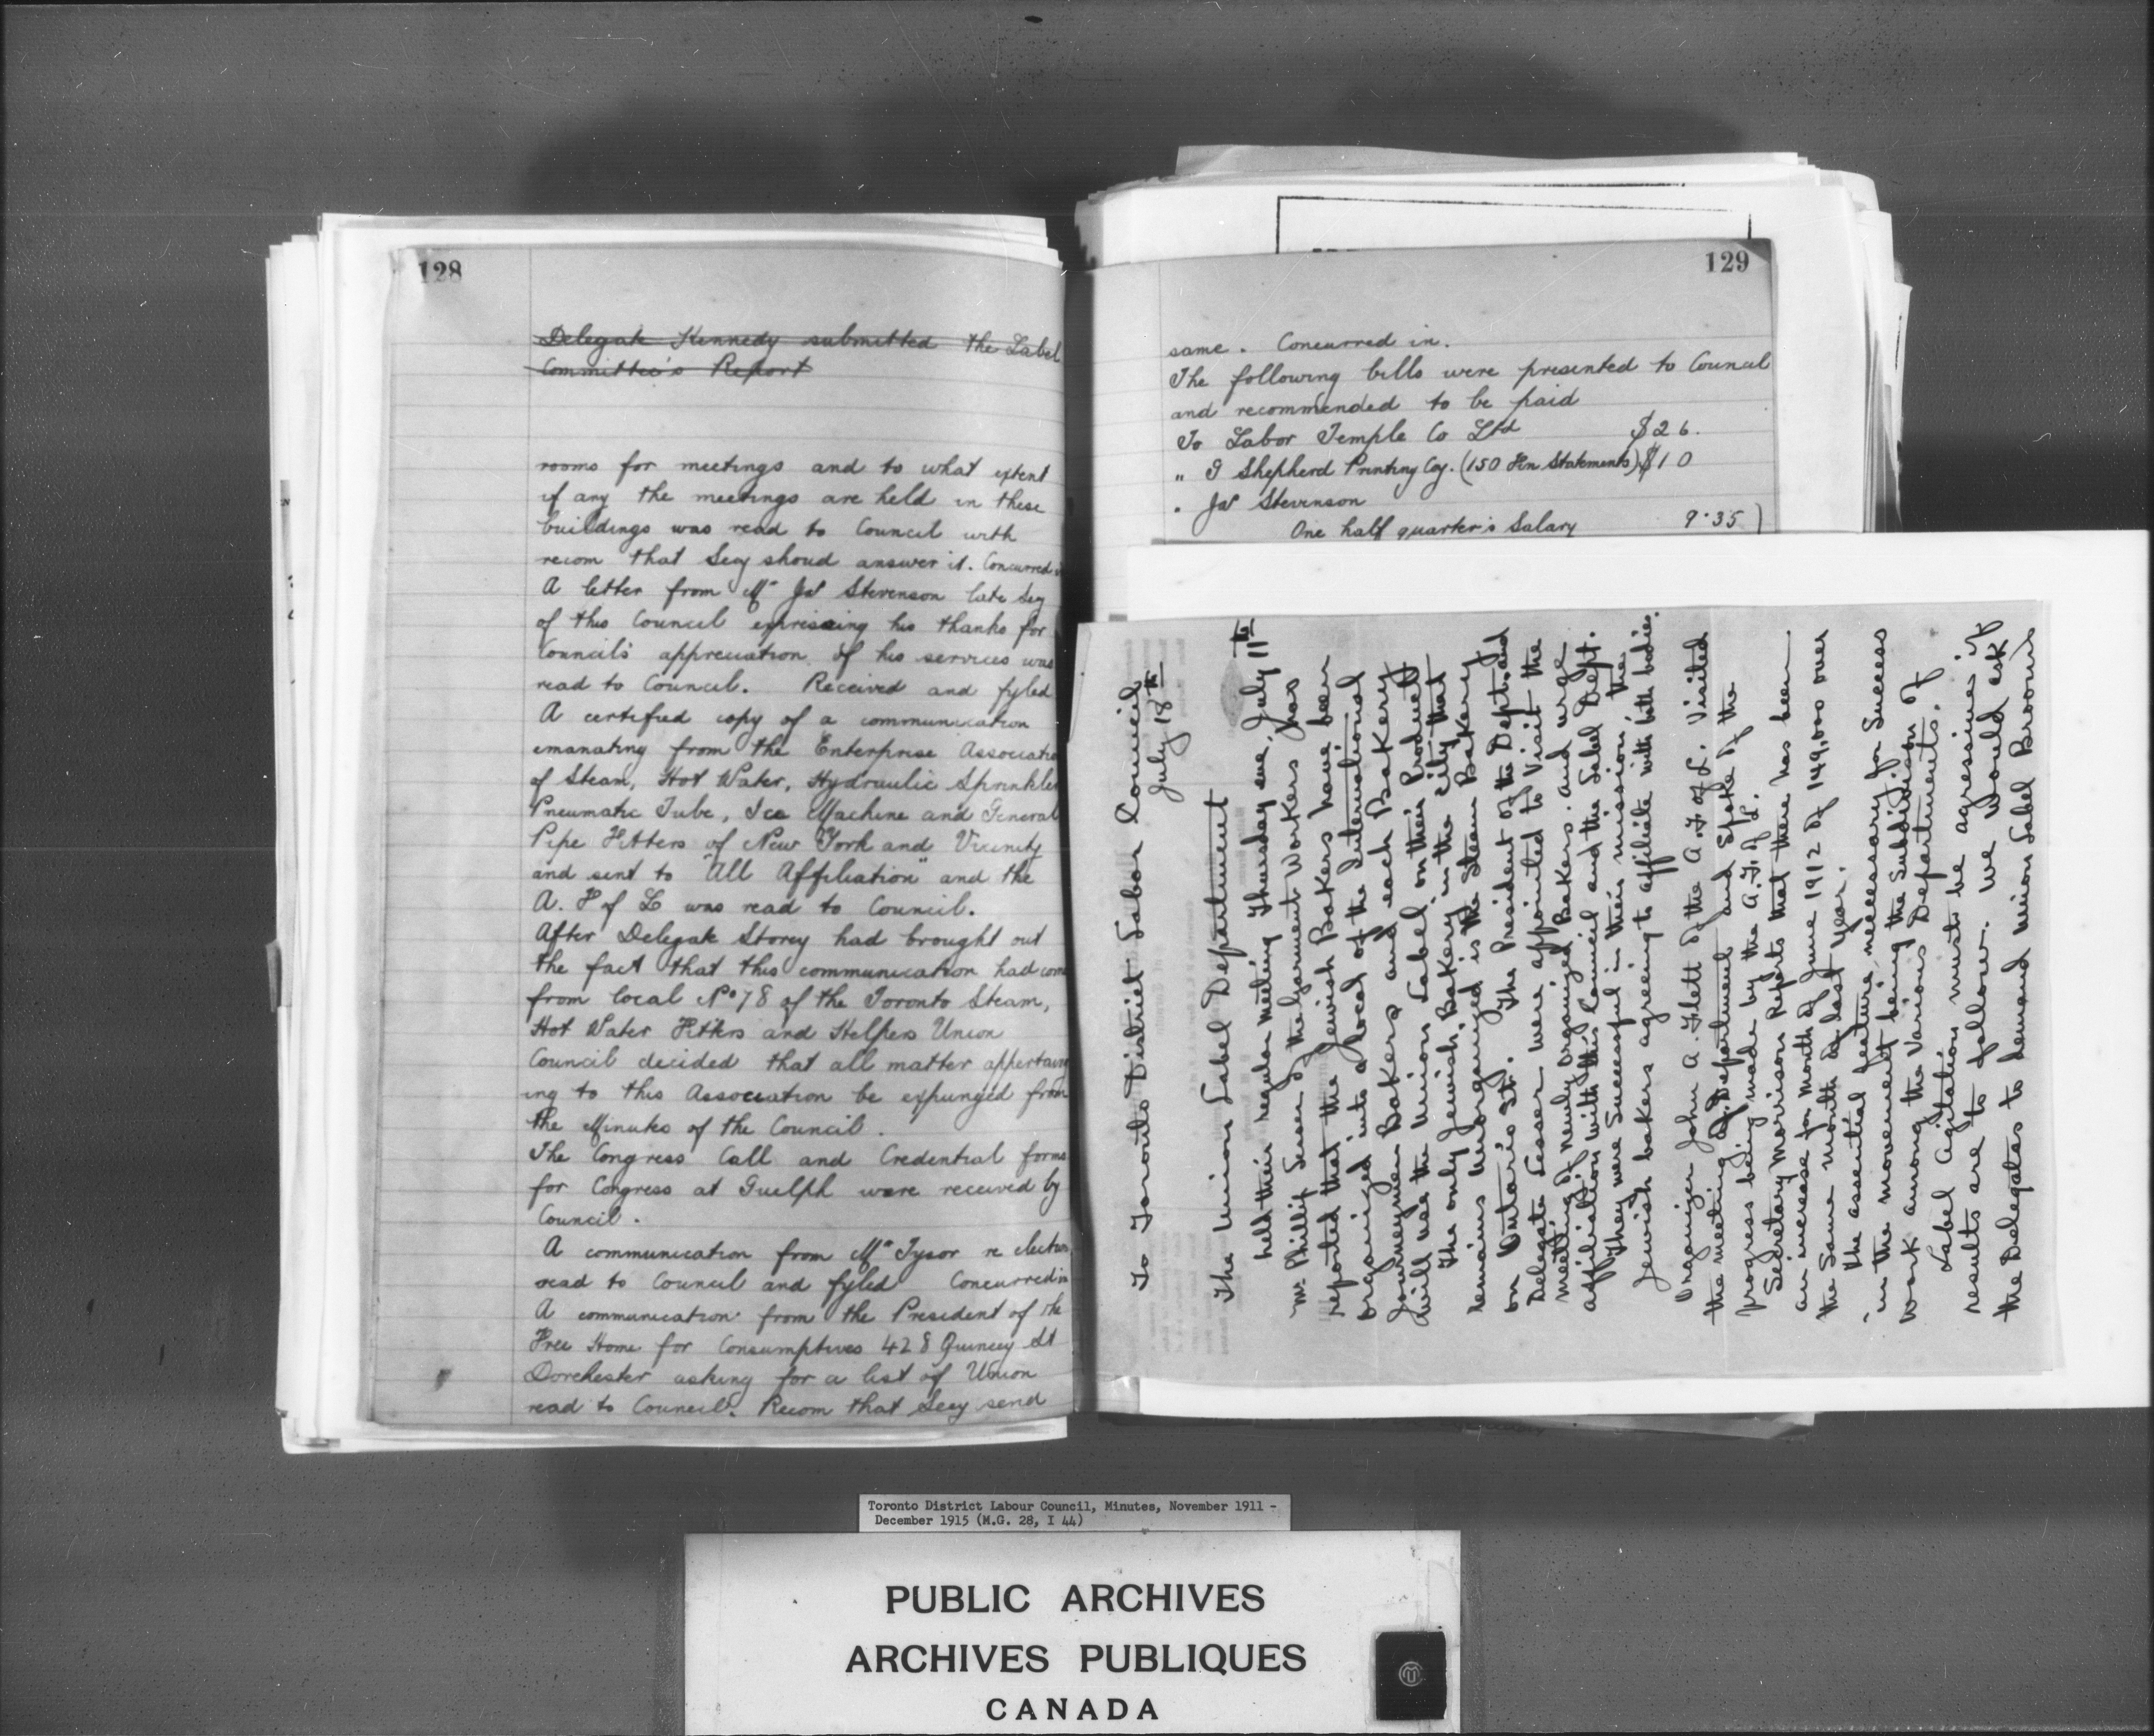 128
Delegate Kennedy submitted the Label
Committee's Report
rooms for meetings and to what extent
if any the meetings are held in these
buildings was read to Council with
recom that Secy shoud answer it. Concurred in
A letter from Mr Jas Stevenson late Secy
of this Council expressing his thanks for
Council's appreciation of his services was
read to Council. Received and fyled
A certified copy of a communication
emanating from the Enterprise Associatio
of Steam, Hot Water, Hydraulic Sprinkler
Pneumatic Tube, Ice Machine and General
Pipe Fitters of New York and Vicinity
and sent to "All Affiliation" and the
A. F of L was read to Council.
After Delegate Storey had brought out
the fact that this communication had come
from local No 78 of the Toronto Steam,
Hot Water Fitters and Helpers Union
Council decided that all matter appertain
ing to this Association be expunged from
the Minutes of the Council.
The Congress Call and Credential forms
for Congress at Guelph were received by
Council.
A communication from Mr Tysor re election
read to Council and fyled Concurred in
A communication from the President of the
Free Home for Consumptives 428 Quincey St
Dorchester asking for a list of Union
read to Council. Recom that Secy send
129
same. Concurred in.
The following bills were presented to Council
and recommended to be paid
To Labor Temple Co Ltd $26.
" Shepherd Printing Coy. (150 Fin Statements) $10
" Jas Stevenson
One half quarter's Salary 9.35
To Toronto District Labor Council
July 18th
The Union Label Department
held their regular meeting Thursday eve, July 11th
Mr. Phillip Lesser of the Garment Workers has
reported that the Jewish Bakers have been
organized into a local of the International
Journeymen Bakers and each Bakery
will use the Union Label on their Product
The only Jewish Bakery in the city that
remains unorganized is the Steam Bakery
on Ontario St. The President of the Dept. and
Delegate Lesser were appointed to visit the
meeting of newly organized Bakers. and urge
affiliation with this Council and the Label Dept.
They were successful in their mission, the
Jewish bakers agreeing to affiliate with both bodies.
Organizer John A. Flett of the A. F. of L. visited
the meeting of Department and spoke of the
progress being made by the A. F. of L.
Secretary Morrison Reports that there has been
an increase for month of June 1912 of 149,000 over
the same month of last year.
The essential feature necessary for success
in the movement being the Subdivision of
work among the Various Departments.
Label agitation must be agressive if
results are to follow. We would ask
the Delegates to demand Union Label Brooms
Toronto District Labour Council, Minutes, November 1911 -
December 1915 (M.G. 28, I 44)
PUBLIC ARCHIVES
ARCHIVES PUBLIQUES
CANADA